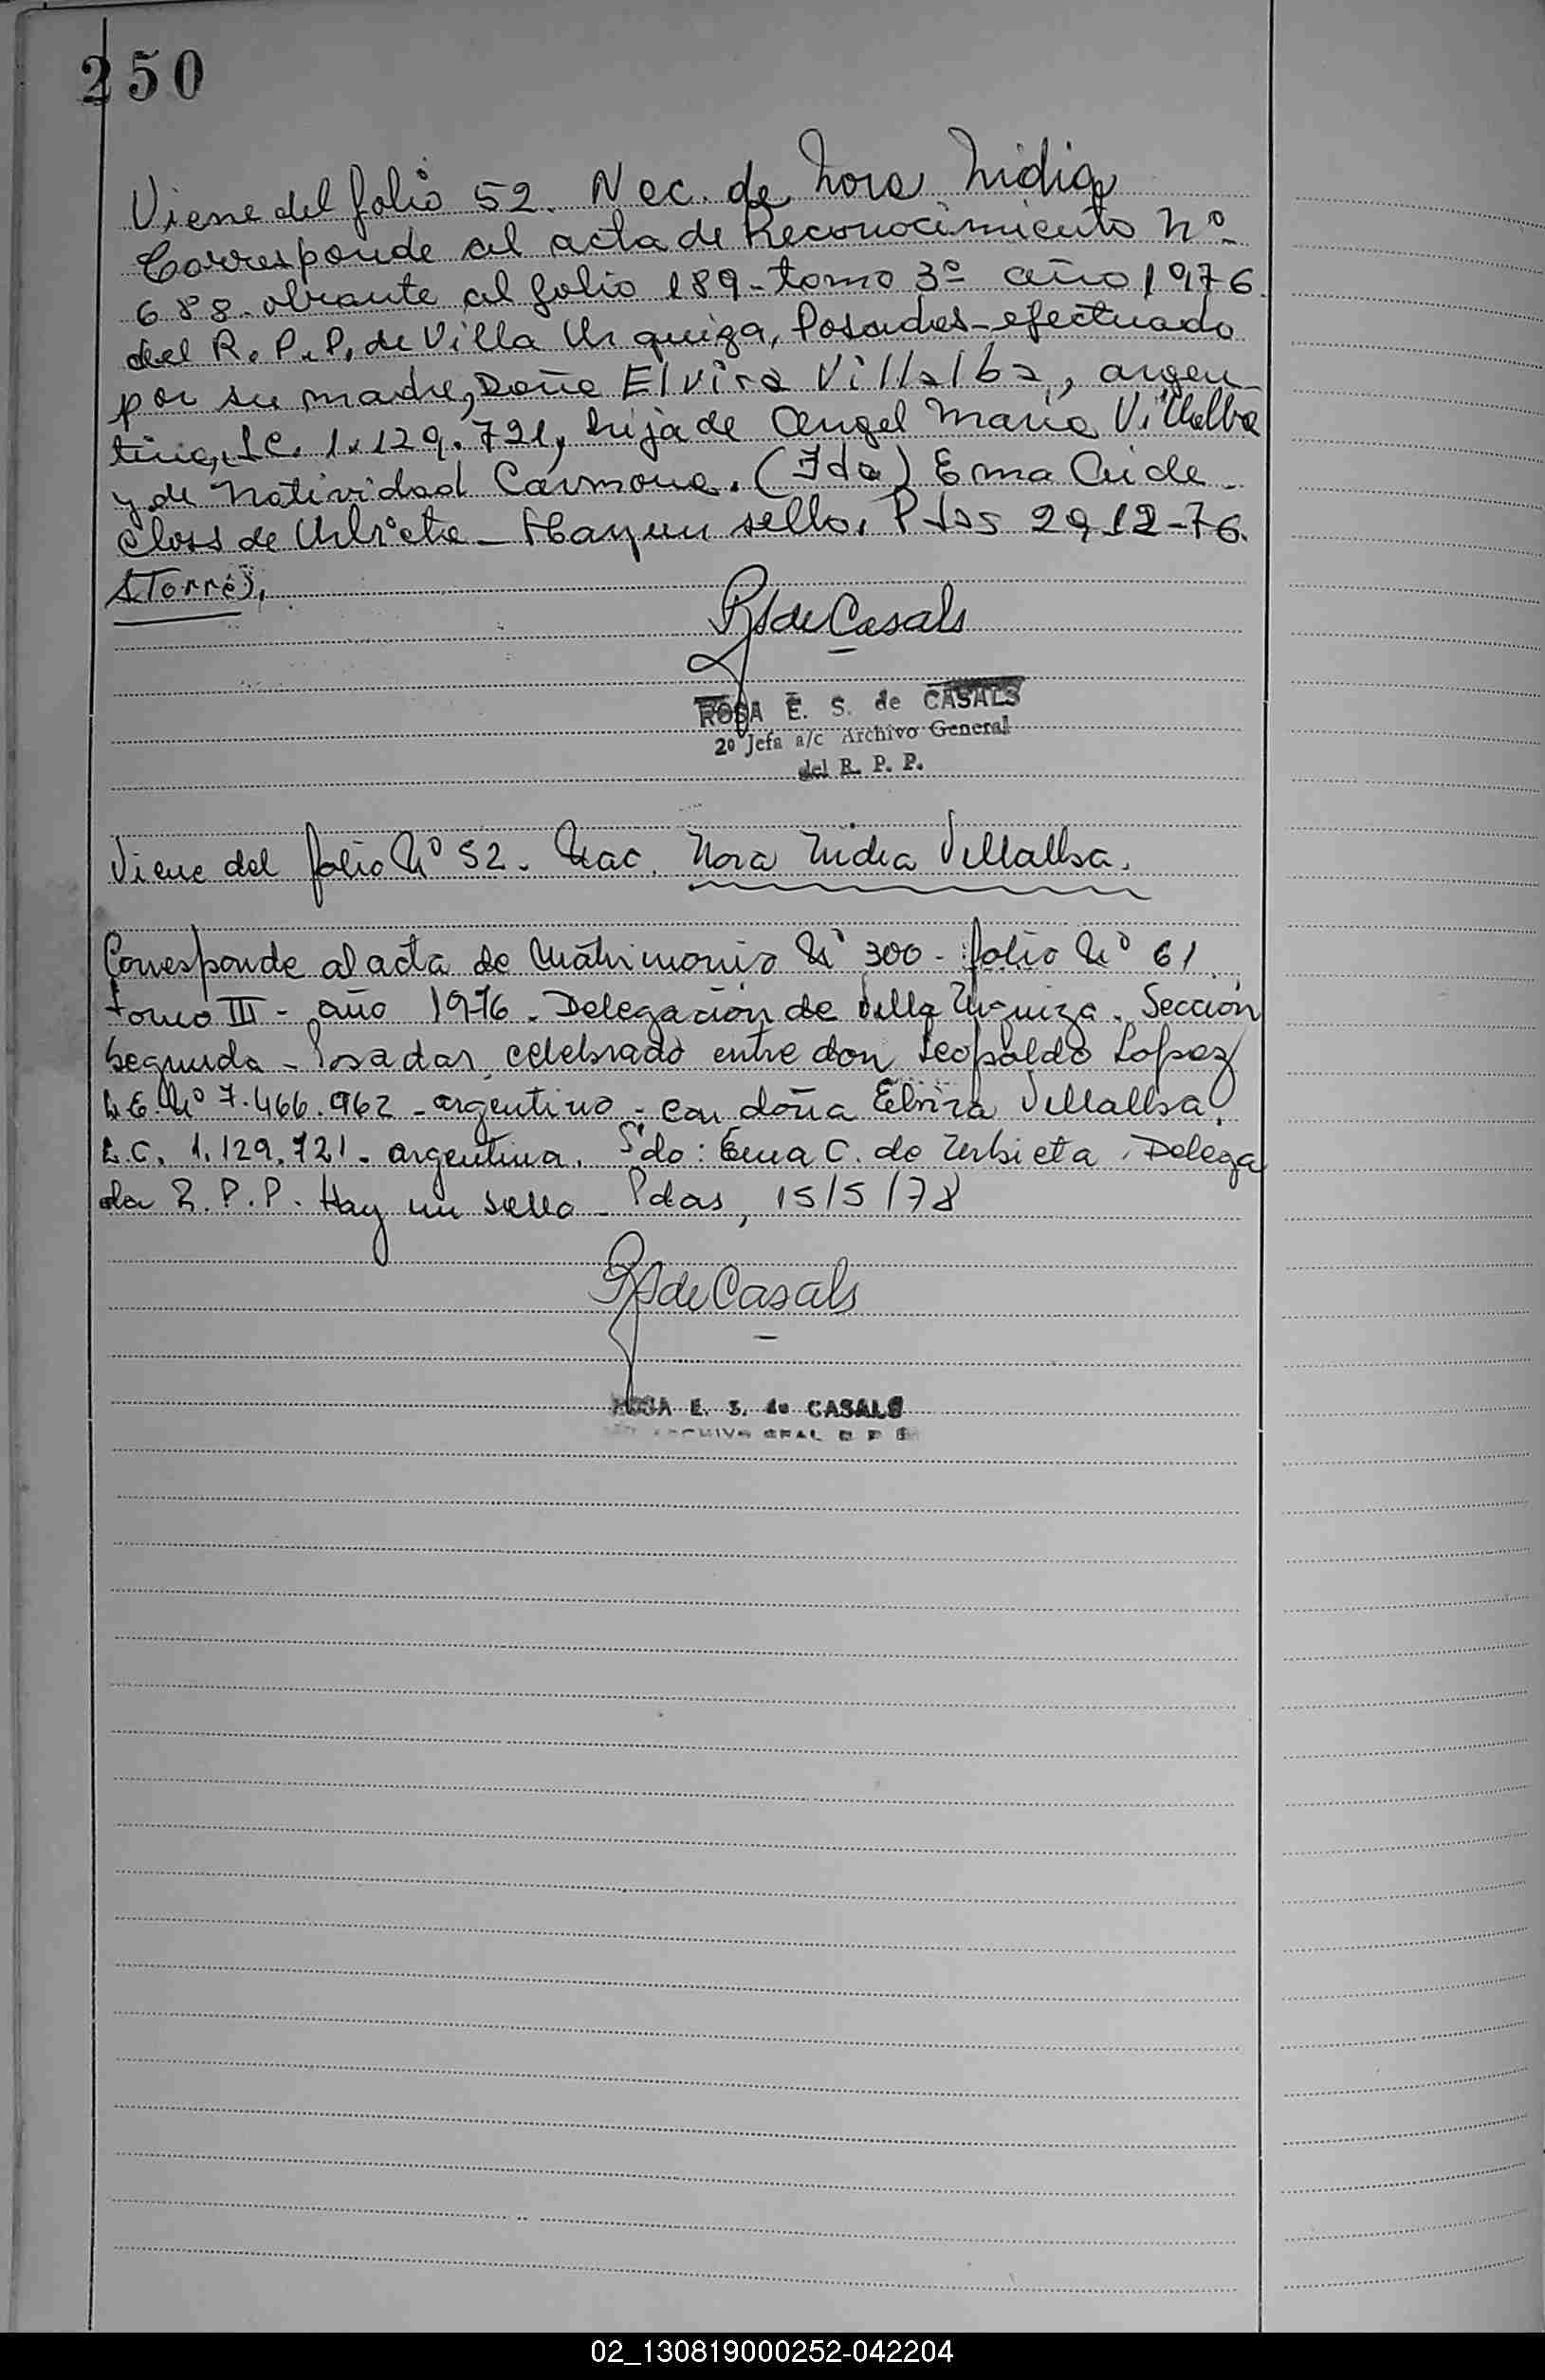 250
Viene del folio 52. Nac. de Nora Nidia
Corresponde al acta de Reconocimiento Nº
688. obrante al folio 189 - tomo 3º año 1976
del R. P. P. de Villa Urquiza, Posadas - efectuado
por su madre, Doña Elvira Villalba, argen
tina, L.C. 1.129.721, hija de Angel Maria Villalba
y de Natividad Carmona. (Fdo) Erma Cide
Closs de Urbieta - Hay un sello. Pdas 29-12-76.
ATorres.
RSdeCasals
ROSA E. S. de CASALS
2º Jefa a/c Archivo General
del R. P. P.
Viene del folio Nº 52. Nac. Nora Nidia Villalba.
Corresponde al acta de Matrimonio Nº 300 - folio Nº 61
tomo III - año 1976. Delegación de Villa Urquiza. Sección
Segunda - Posadas, celebrado entre don Leopoldo Lopez
L.E. Nº 7.466.962 - argentino - con doña Elvira Villalba.
L.C. 1.129.721 - argentina. Fdo: Ema C. de Urbieta. Delega
da R.P.P. Hay un sello - Pdas, 15/5/78
RSdeCasals
ROSA E. S. de CASALS
ARCHIVO GRAL
02_130819000252-042204